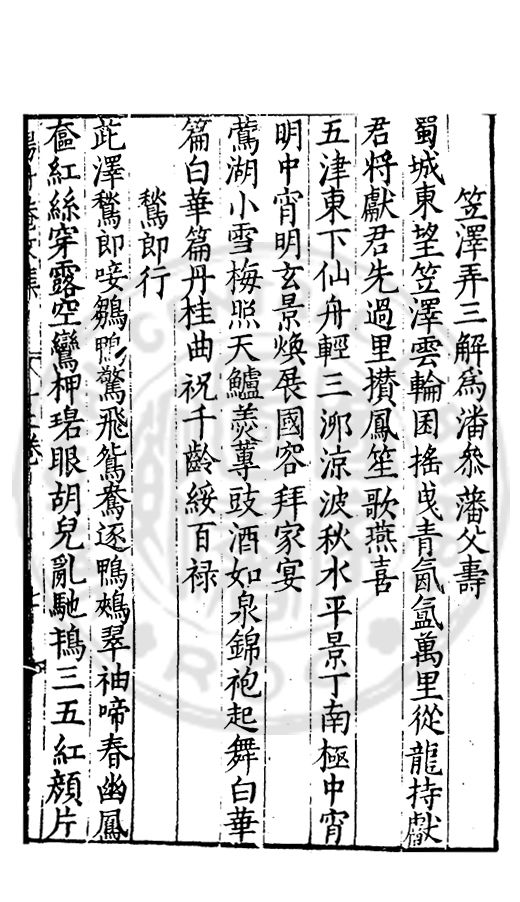 笠澤弄三解為潘叅藩父壽
蜀城東望笠澤雲輪囷搖曵青氤氳萬里從龍持獻
君將獻君先過里攅鳳笙歌燕喜
五津東下仙舟輕三泖涼波秋水平景丁南極中宵
明中宵明玄景煥展國容拜家宴
鶯湖小雪梅照天鱸羹蓴豉酒如泉錦袍起舞白華
篇白華篇丹桂曲祝千齡綏百禄
鶖即行
茈澤鶖即唼鶵鴨驚飛鴛鴦逐鴨鶒翠袖啼春幽鳳
奩紅絲穿露空鸞柙珺眼胡兒亂馳鴇三五紅顔片